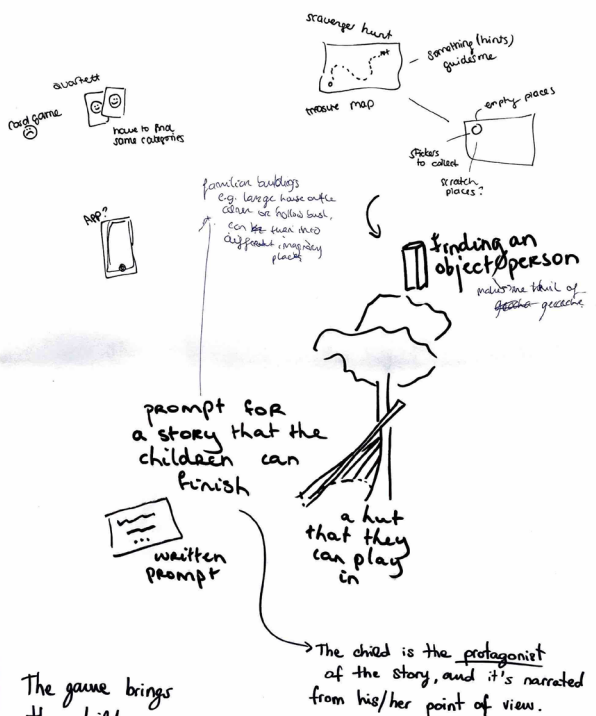 scavenger hunt
something (hints)
guides me
treasure map
empty places
stickers
to collect
scratch
places?
quartett
card game
have to find
same categories
App?
familiar buildings
e.g. large house on the
corner or hollow bush,
can be turn into
different imaginary
places
finding an
object/person
makes me think of
geocache
prompt for
a story that the
children can
finish
written
prompt
a hut
that they
can play
in
The child is the protagonist
of the story, and it's narrated
from his/her point of view.
The game brings